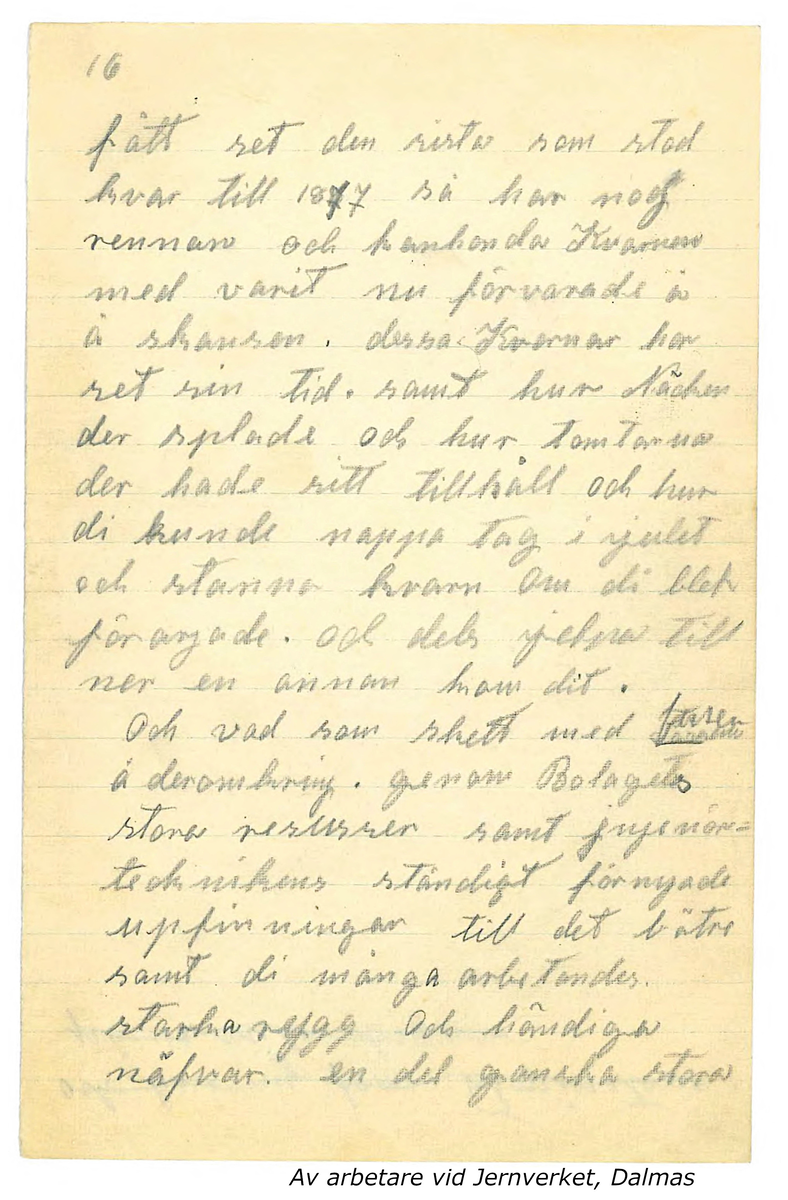 16
fått set den sista som stod
kvar till 1877 så har nog
rennan och kanhonda Kvarnen
med varit nu förvarade å
å skansen. dessa Kvarnar har
set sin tid. samt hur Näcken
der splade och hur tomtarna
der hade sitt tillhåll och hur
di kunde nappa tag i julet
och stanna kvarn om di blek
förargade. och dels jelpa till
ner en annan kom dit.
Och vad som skett med
å deromkring. genom Bolagets
stora resusser samt jnjenör=
teknikens ständigt förnyade
upfinningar till det bätre
samt di många arbetandes.
starka rygg och händiga
näfvar. en del ganska stora
Av arbetare vid Jernverket, Dalmas